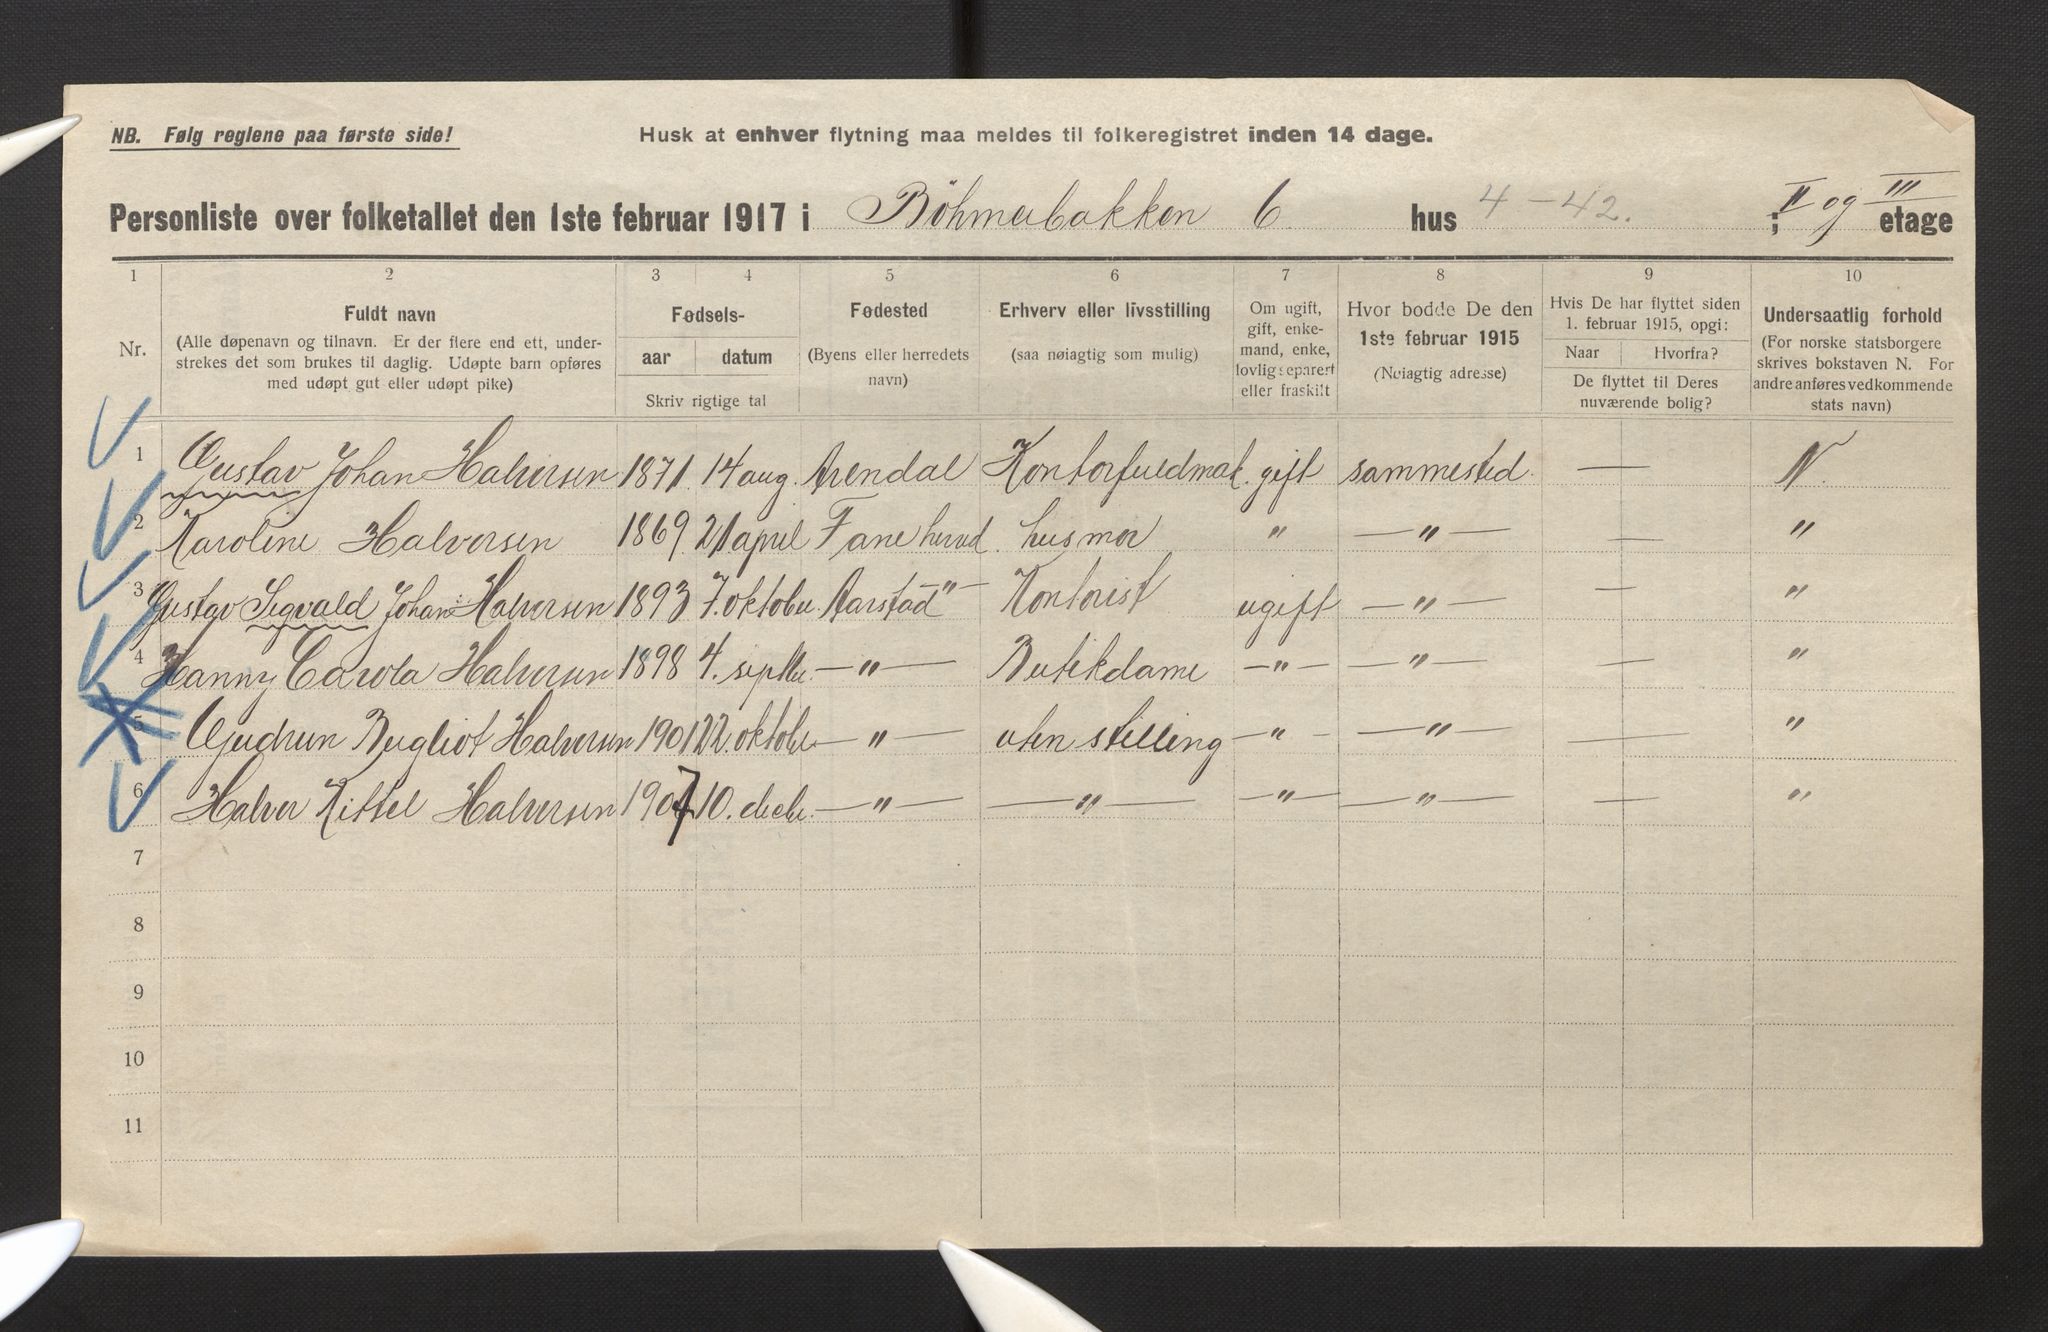 NB. Følg reglene paa første side! Husk at enhver flytning maa meldes til folkeregistret inden 14 dage.
Personliste over folketallet den 1ste februar 1917 i Böhmerbakken 6 hus 4-42. ; II og III etage
1 2 3 4 5 6 7 8 9 10
Nr. Fuldt navn (Alle døpenavn og tilnavn. Er der flere end ett, under-
strekes det som brukes til daglig. Udøpte barn opføres
med udøpt gut eller udøpt pike)
Fødsels-
aar datum
Skriv rigtige tal
Fødested
(Byens eller herredets
navn)
Erhverv eller livsstilling
(saa nøiagtig som mulig)
Om ugift,
gift, enke-
mand, enke,
lovlig separert
eller fraskilt
Hvor bodde De den
1ste februar 1915
(Nøiagtig adresse)
Hvis De har flyttet siden
1. februar 1915, opgi:
Naar Hvorfra?
De flyttet til Deres
nuværende bolig?
Undersaatlig forhold
(For norske statsborgere
skrives bokstaven N. For
andre anføres vedkommende
stats navn)
1 Gustav Johan Halversen 1871 14 aug. Arendal Kontorfuldmæk. gift sammested. — N.
2 Karoline Halversen 1869 21 april Fane herred. husmor " —"— — "
3 Gustav Sigvald Johan Halversen 1893 7. oktober. Aarstad —"— Kontorist ugift —"— — "
4 Hanny Carola Halversen 1898 4. septbr. —"— Butikdame —"— —"— — "
5 Gudrun Bergliot Halversen 1901 22. oktobr. —"— uten stilling —"— —"— — "
6 Halver Kittel Halversen 1907 10. decbr. —"— —"— —"— —"— — "
7
8
9
10
11